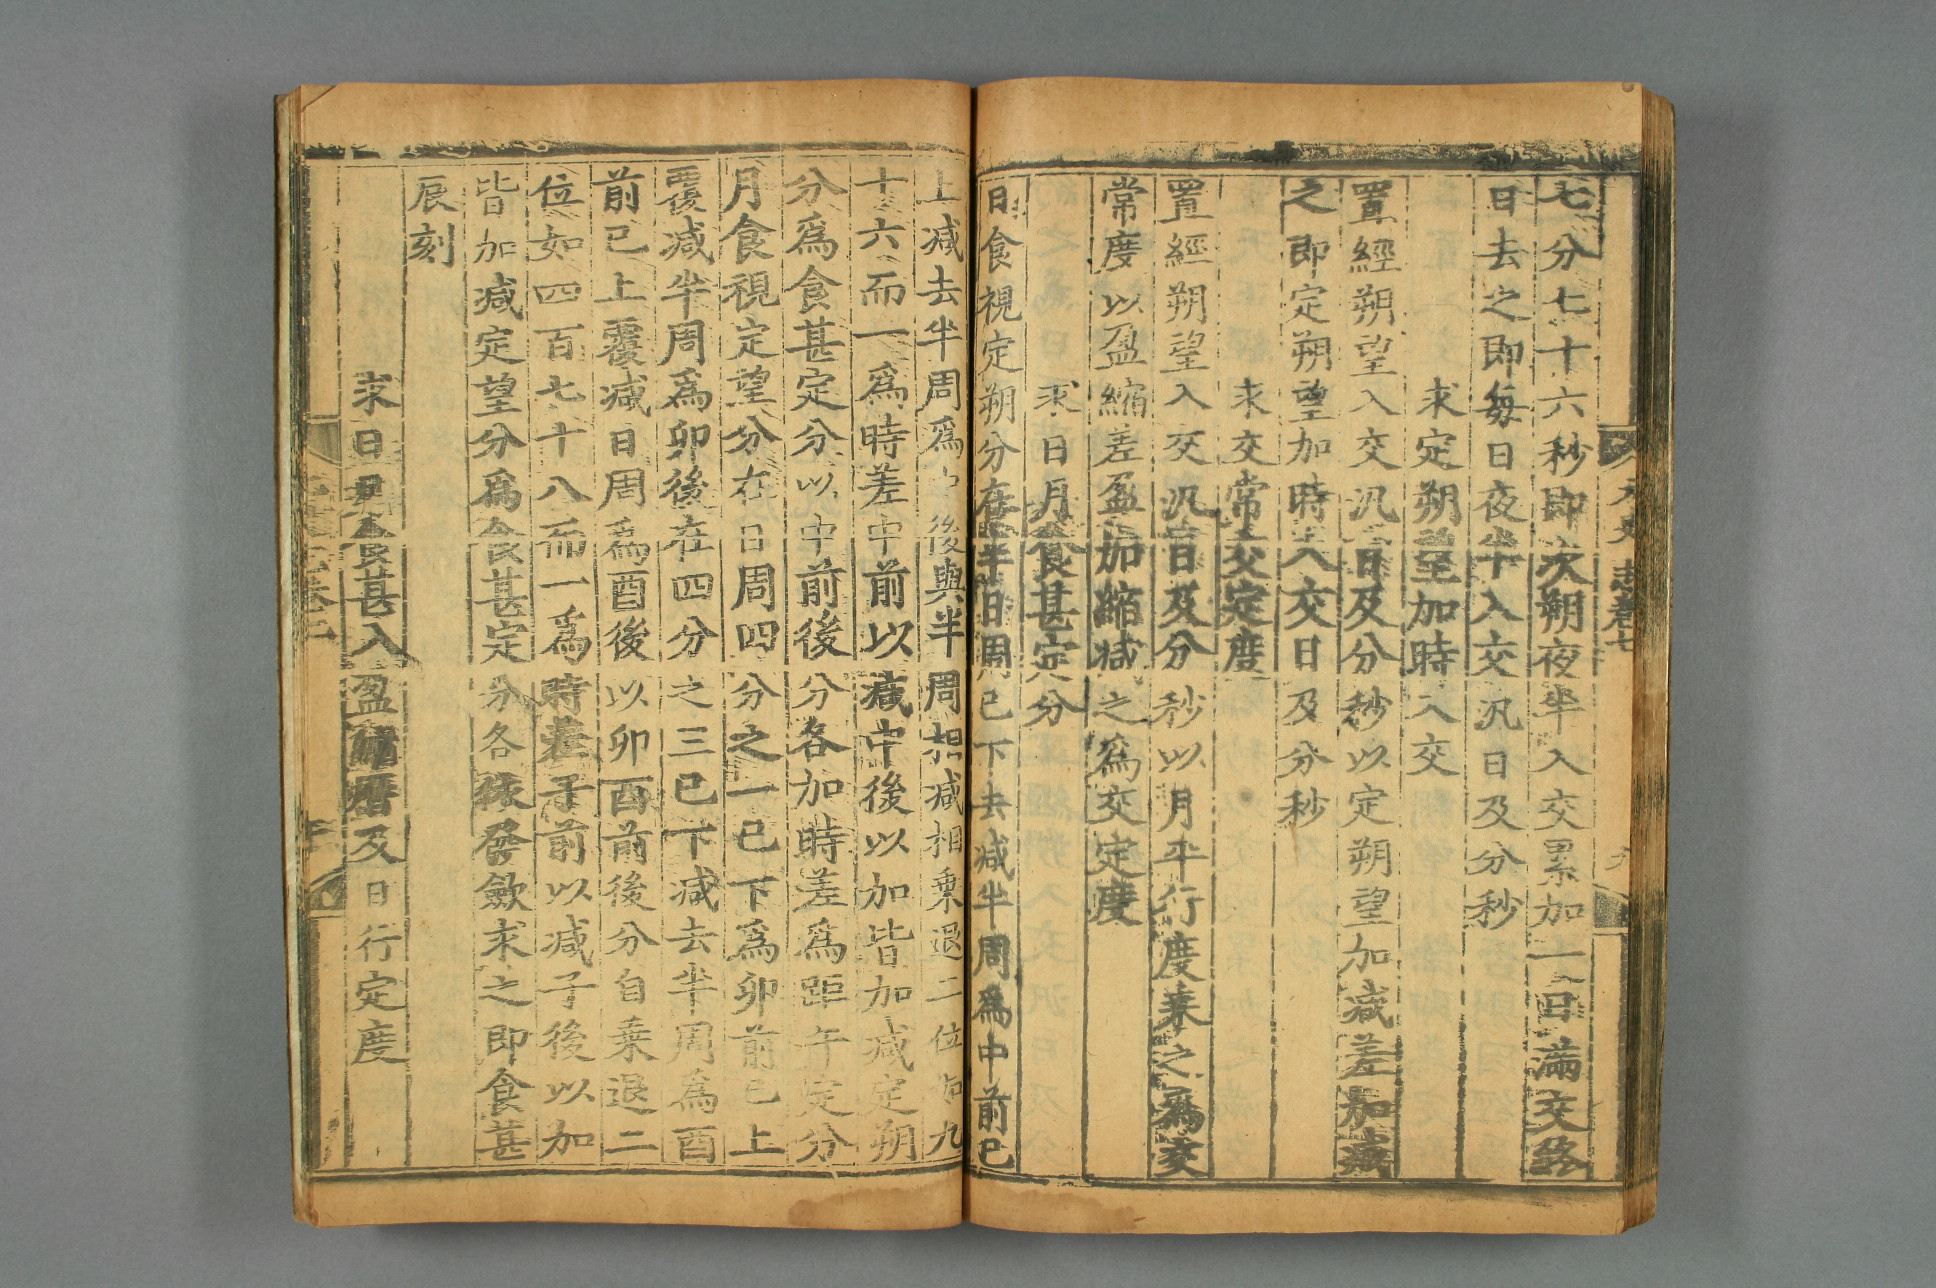 元史志卷七
九
七分七十六秒即次朔夜半入交累加一日滿交終
日去之即每日夜半入交汎日及分秒
求定朔望加時入交
置經朔望入交汎日及分秒以定朔望加減差加減
之即定朔望加時入交日及分秒
求交常交定度
置經朔望入交汎日及分秒以月平行度乗之為交
常度以盈縮差盈加縮減之為交定度
求日月食甚定分
日食視定朔分在半日周已下去減半周為中前已
上減去半周為中後與半周相減相乗退二位如九
十六而一為時差中前以減中後以加皆加減定朔
分為食甚定分以中前後分各加時差為距午定分
月食視定望分在日周四分之一已下為卯前已上
覆減半周為卯後在四分之三已下減去半周為酉
前已上覆減日周為酉後以卯酉前後分自乗退二
位如四百七十八而一為時差子前以減子後以加
皆加減定望分為食甚定分各依發斂求之即食甚
辰刻
求日月食甚入盈縮曆及日行定度